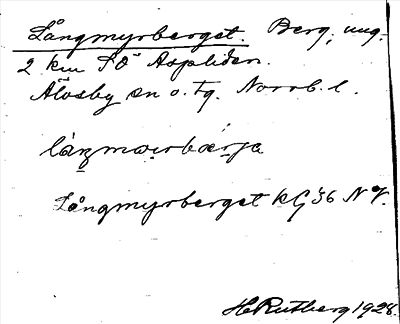 Långmyrberget. Berg, ung.
2 km SÖ Aspliden.
Älvsby sn o. tg. Norrb. l.
Långmyrberget kG 36 NV.
H Rutberg 1928.